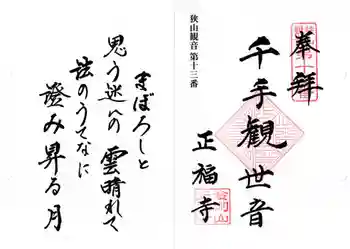 奉拝
狭山観音 第十三番
千手観世音
正福寺
まぼろしと
思う迷いの 雲晴れて
法のうてなに
澄み昇る月